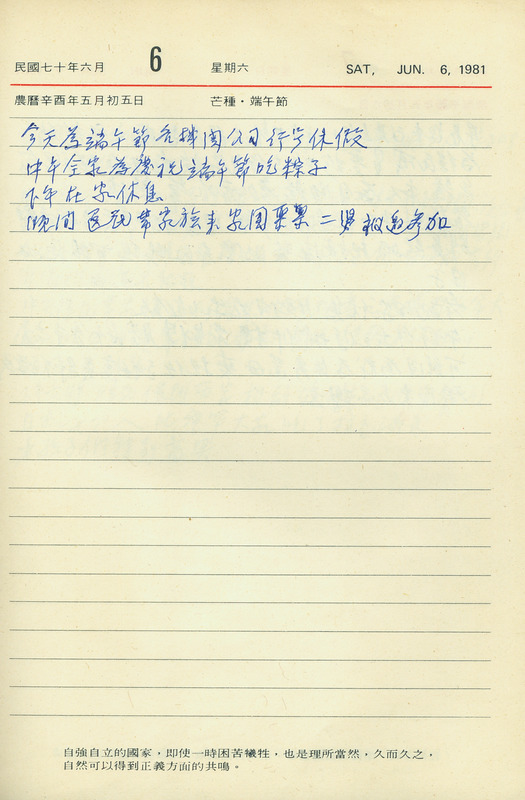 民國七十年六月 6 星期六 SAT, JUN. 6, 1981
農曆辛酉年五月初五日 芒種·端午節
今天為端午節各機関公司行号休假
中午全家為慶祝端午節吃粽子
下午在家休息
晚间 帶家族来家園聚 二男被邀参加
自強自立的國家，即使一時困苦犧牲，也是理所當然，久而久之，
自然可以得到正義方面的共鳴。